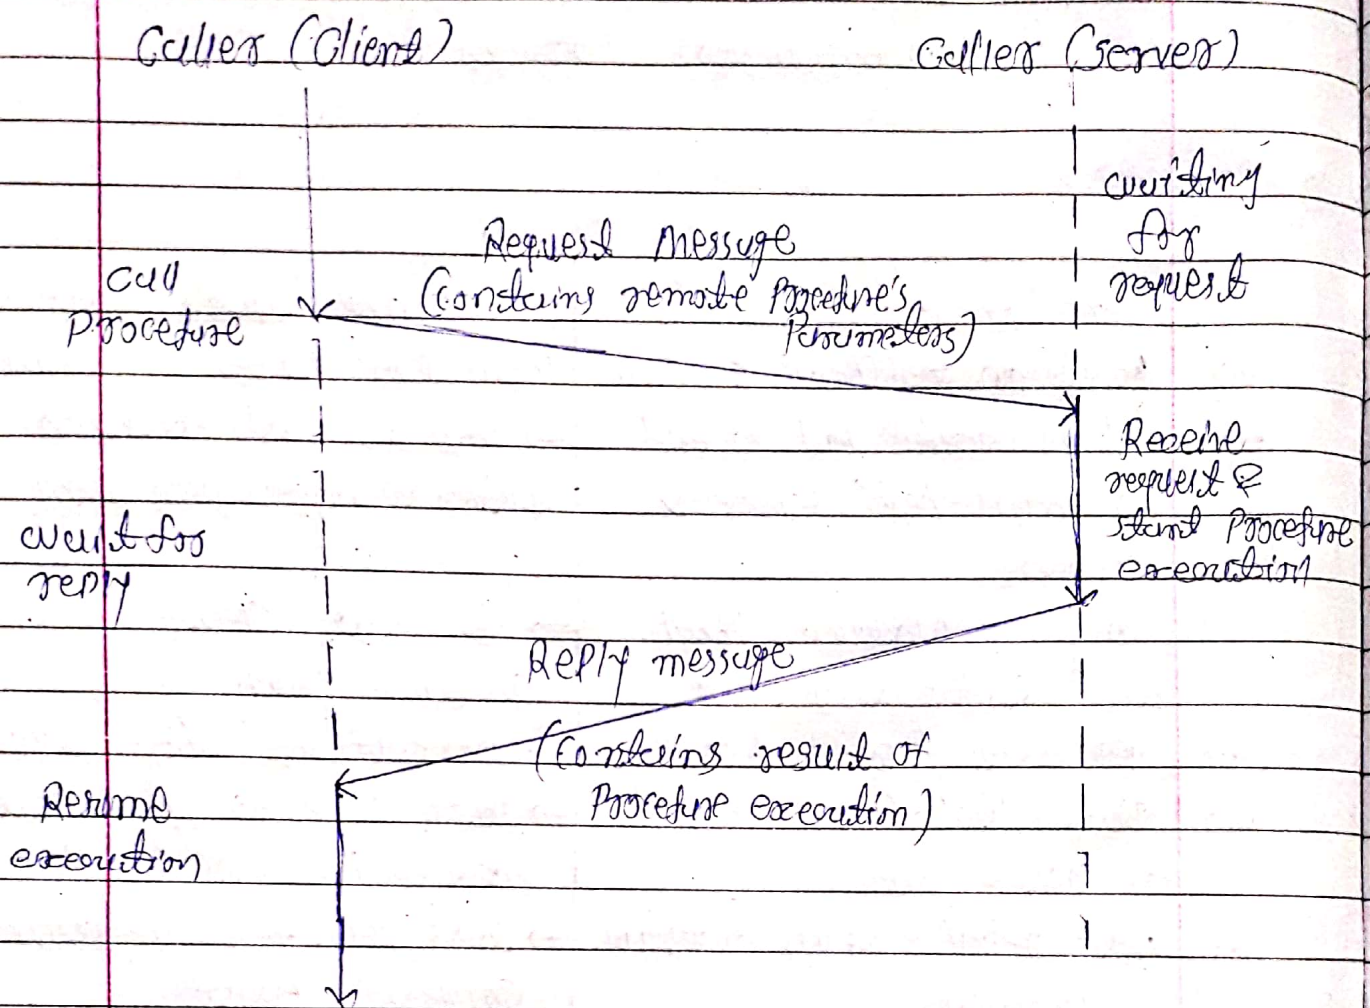 Caller (Client)
Caller (Server)
waiting
for
request
Request Message
(Contains remote Procedure's
Parameters)
Call
Procedure
Receive
request &
start Procedure
execution
wait for
reply
Reply message
(Contains result of
Procedure execution)
Resume
execution